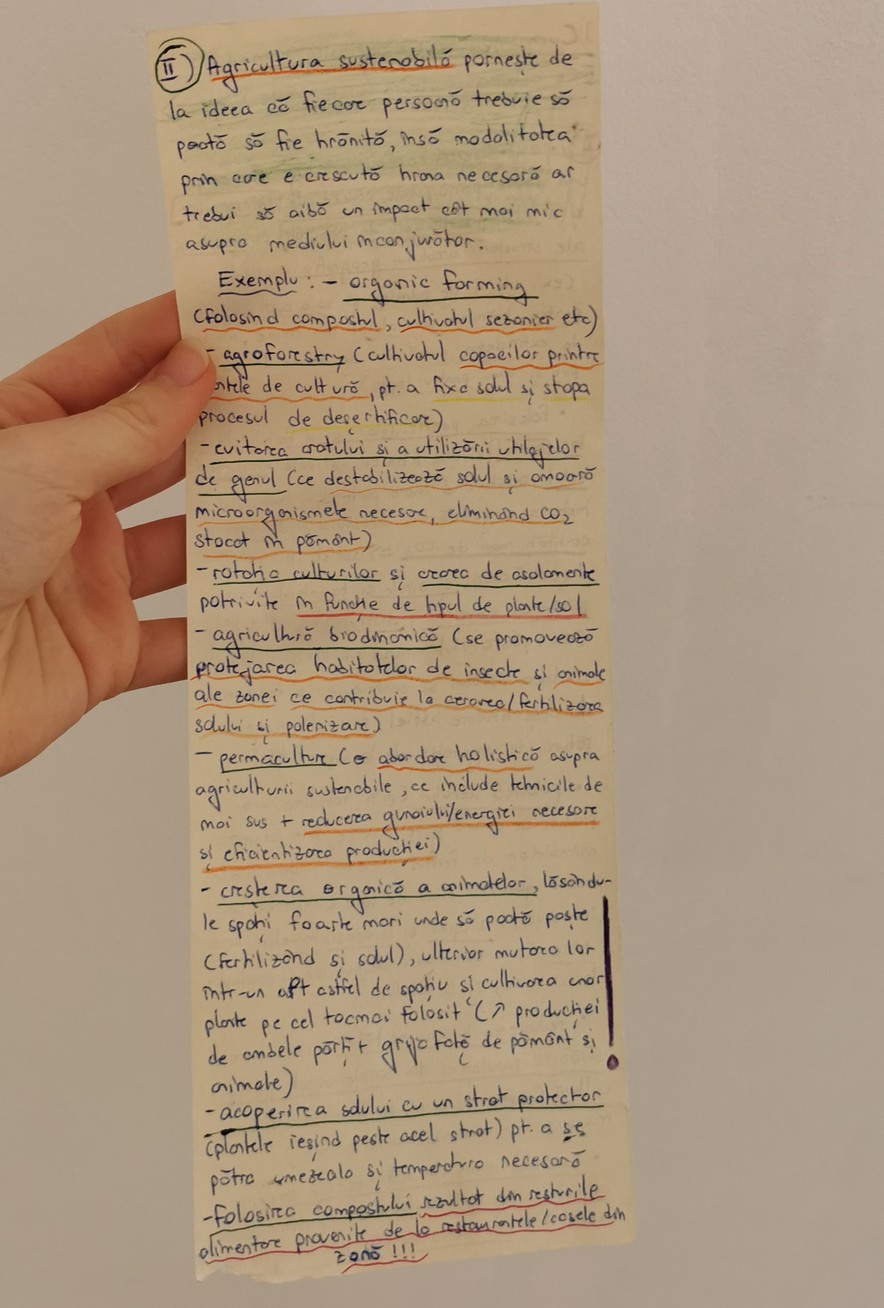 II) Agricultura sustenabilă pornește de
la ideea că fiecare persoană trebuie să
poată să fie hrănită, însă modalitatea
prin care e crescută hrana necesară ar
trebui să aibă un impact cât mai mic
asupra mediului înconjurător.
Exemplu: - organic farming
(folosind compostul, cultivatul sezonier etc)
- agroforestry (cultivatul copacilor printre
ntele de cultură, pt. a fixa solul și stopa
procesul de deșertificare)
- evitarea aratului și a utilizării utilajelor
de genul (ce destabilizează solul și omoară
microorganismele necesare, eliminând CO2
stocat în pământ)
- rotația culturilor și crearea de asolamente
potrivite în funcție de tipul de plante/sol
- agricultură biodinamică (se promovează
protejarea habitatelor de insecte și animale
ale zonei ce contribuie la aerarea/fertilizarea
solului și polenizare)
- permaculture (o abordare holistică asupra
agriculturii sustenabile, ce include tehnicile de
mai sus + reducerea gunoiului/energiei necesare
și eficientizarea producției)
- creșterea organică a animalelor, lăsându-
le spații foarte mari unde să poată paște
(fertilizând și solul), ulterior mutarea lor
într-un alt astfel de spațiu și cultivarea unor
plante pe cel tocmai folosit (↗ producției
de ambele părți + grija față de pământ și
animale)
- acoperirea solului cu un strat protector
(plantele ieșind peste acel strat) pt. a se
păstra umezeala și temperatura necesară
- folosirea compostului rezultat din resturile
alimentare provenite de la restaurantele/casele din
zonă !!!